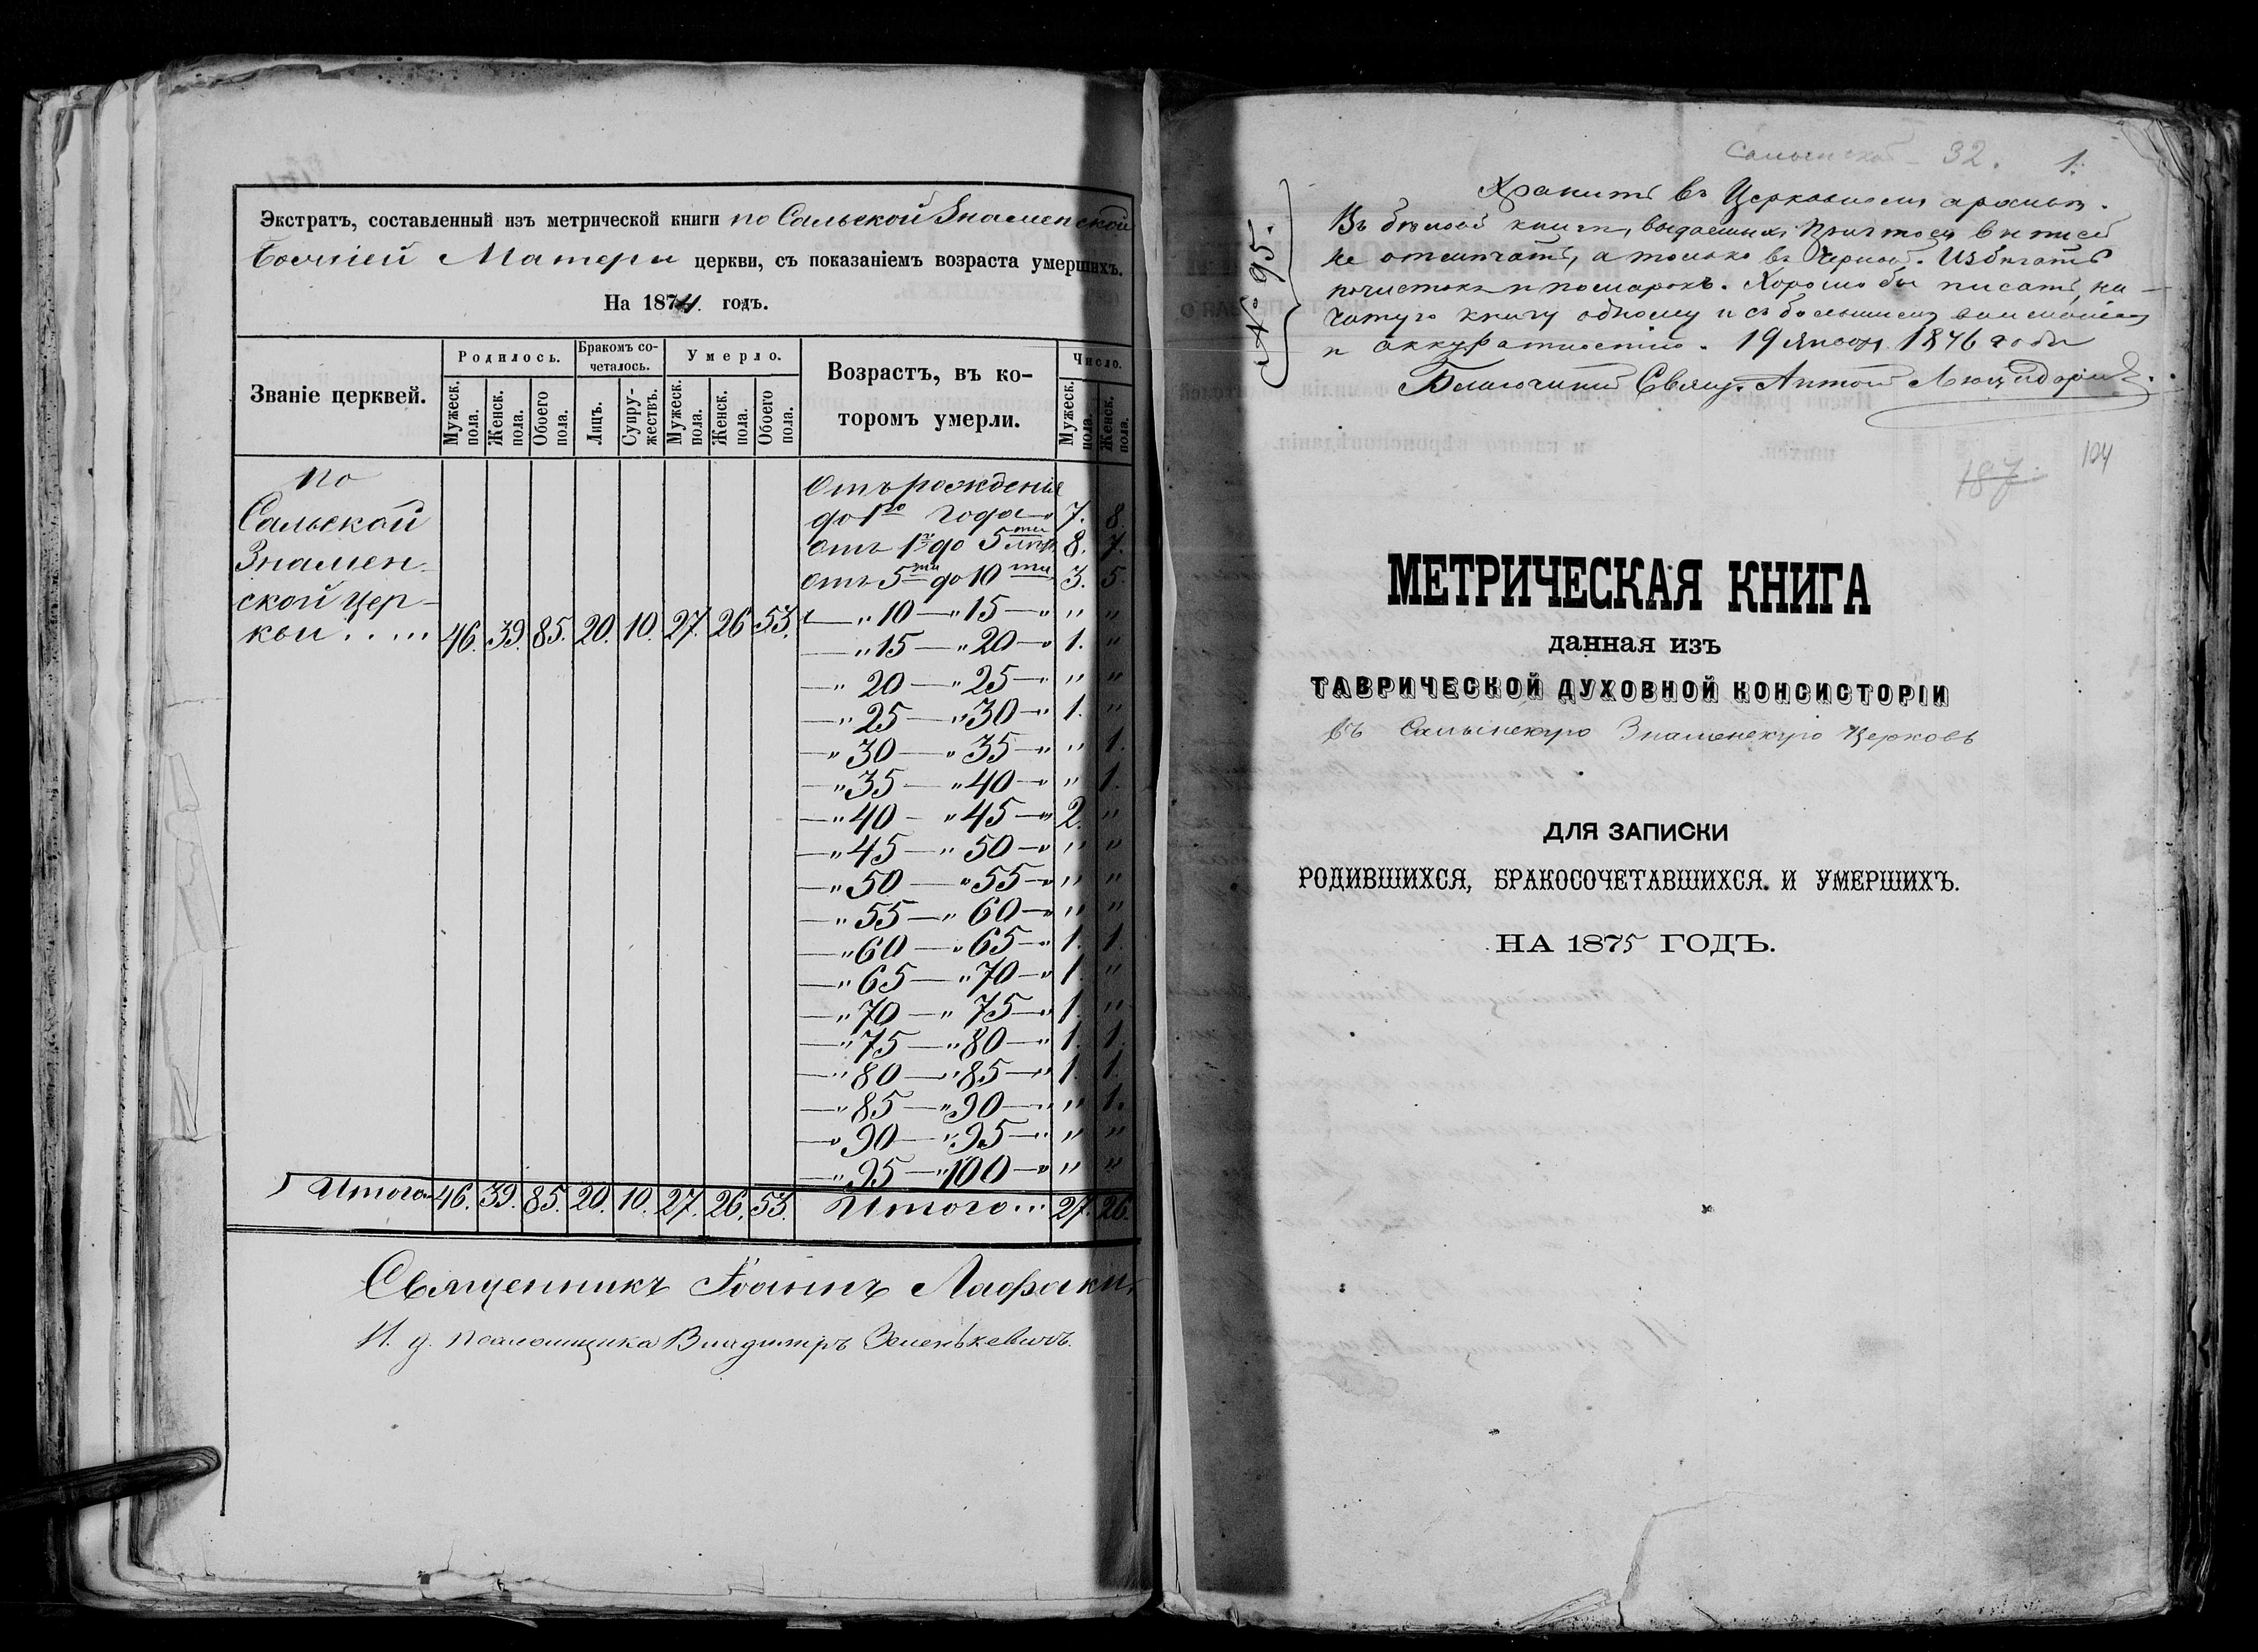 Экстратъ, составленный изъ метрической книги по Сальской Знаменской
Божіей Матери церкви, съ показаніемъ возраста умершихъ.
На 1874. годъ.
Званіе церквей.
Родилось.
Бракомъ сочеталось.
Умерло.
Возрастъ, въ ко-
торомъ умерли.
Число.
Мужеск. пола.
Женск. пола.
Обоего пола.
Лицъ.
Супружествъ.
Мужеск. пола.
Женск. пола.
Обоего пола.
Мужеск. пола.
Женск. пола.
По
Сальской
Знамен-
ской цер-
кви..... 46. 39. 85. 20. 10. 27. 26 53.
Отъ рожденія
до 1го года " 7. 8.
Отъ 1го до 5ти лѣтъ 8. 7.
Отъ 5ти до 10ти 3. 5.
— " 10 — " 15 — " " "
— " 15 — " 20 — " 1. "
— " 20 — " 25 — " " "
— " 25 — " 30 — " 1. "
— " 30 — " 35 — " " 1.
— " 35 — " 40 — " " 1.
— " 40 — " 45 — " 2. "
— " 45 — " 50 — " " "
— " 50 — " 55 — " " "
— " 55 — " 60 — " " "
— " 60 — " 65 — " 1. 1.
— " 65 — " 70 — " 1. "
— " 70 — " 75 — " 1. "
— " 75 — " 80 — " 1. 1.
— " 80 — " 85 — " 1. 1.
— " 85 — " 90 — " " 1.
— " 90 — " 95 — " " "
— " 95 — " 100 — " " "
Итого 46. 39. 85. 20. 10. 27. 26. 53. Итого... 27. 26.
Священникъ Іоаннъ Лафаки
И. д. псаломщика Владиміръ Зенькевичъ.
32. 1.
№ 95.
Хранить въ Церковномъ архивѣ.
Въ бѣловой книгѣ, выдаемыхъ Причтомъ выписей
не отмѣчать, а только въ черновой. Избѣгать
почистокъ и помарокъ. Хорошо бы писать на-
чатую книгу одному и съ большимъ вниманіемъ
и аккуратностію. 19 января 1876 года
Благочинный Свящ. Антоній
187.
104
МЕТРИЧЕСКАЯ КНИГА
данная изъ
ТАВРИЧЕСКОЙ ДУХОВНОЙ КОНСИСТОРІИ
въ Салынскую Знаменскую Церковь
ДЛЯ ЗАПИСКИ
РОДИВШИХСЯ, БРАКОСОЧЕТАВШИХСЯ И УМЕРШИХЪ.
НА 1875 ГОДЪ.